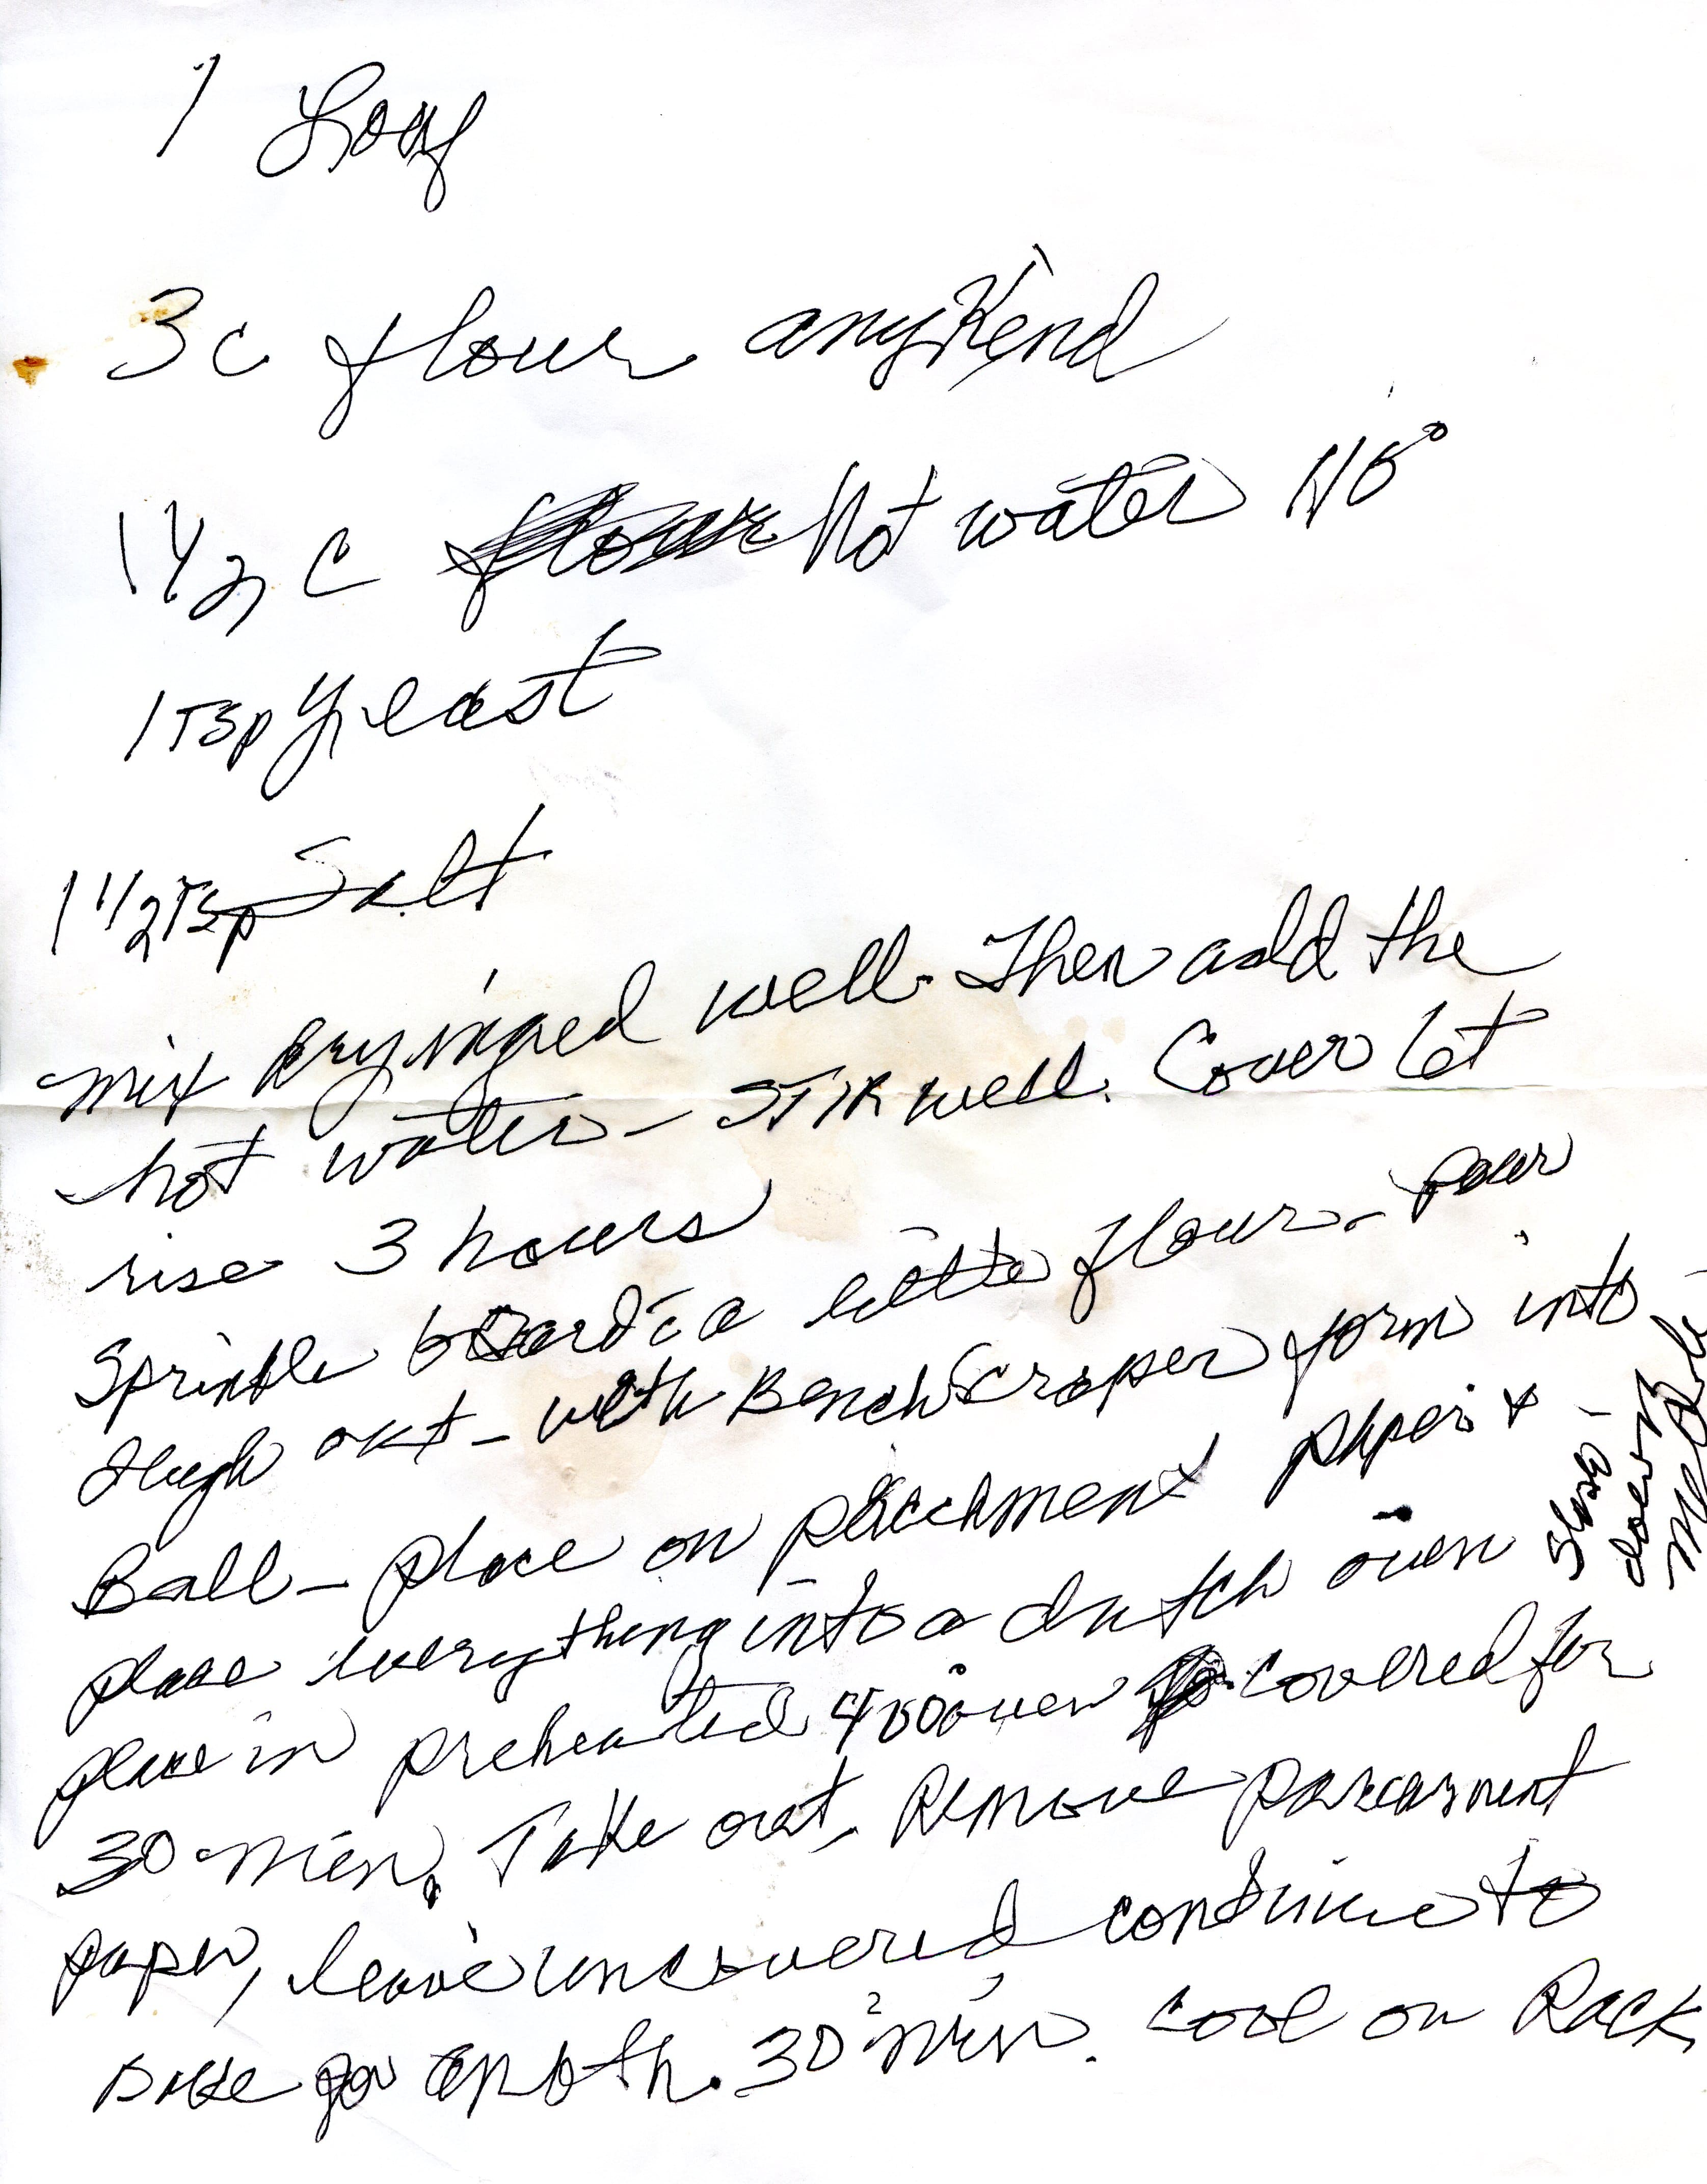 1 Loaf
3c flour any Kind
1 1/2 c hot water 110°
1 Tsp yeast
1 1/2 Tsp Salt
mix dry ingred well. Then add the
hot water - STIR well. Cover let
rise 3 hours
Sprinkle board c̄ a little flour - pour
dough out - with Bench Scraper form into
Ball - place on parchment paper +
place everything into a dutch oven
place in preheated 400° oven covered for
30 min. Take out, Remove parchment
paper, leave uncovered continue to
Bake for anoth. 30 min. cool on Rack
Slash -
down
middle